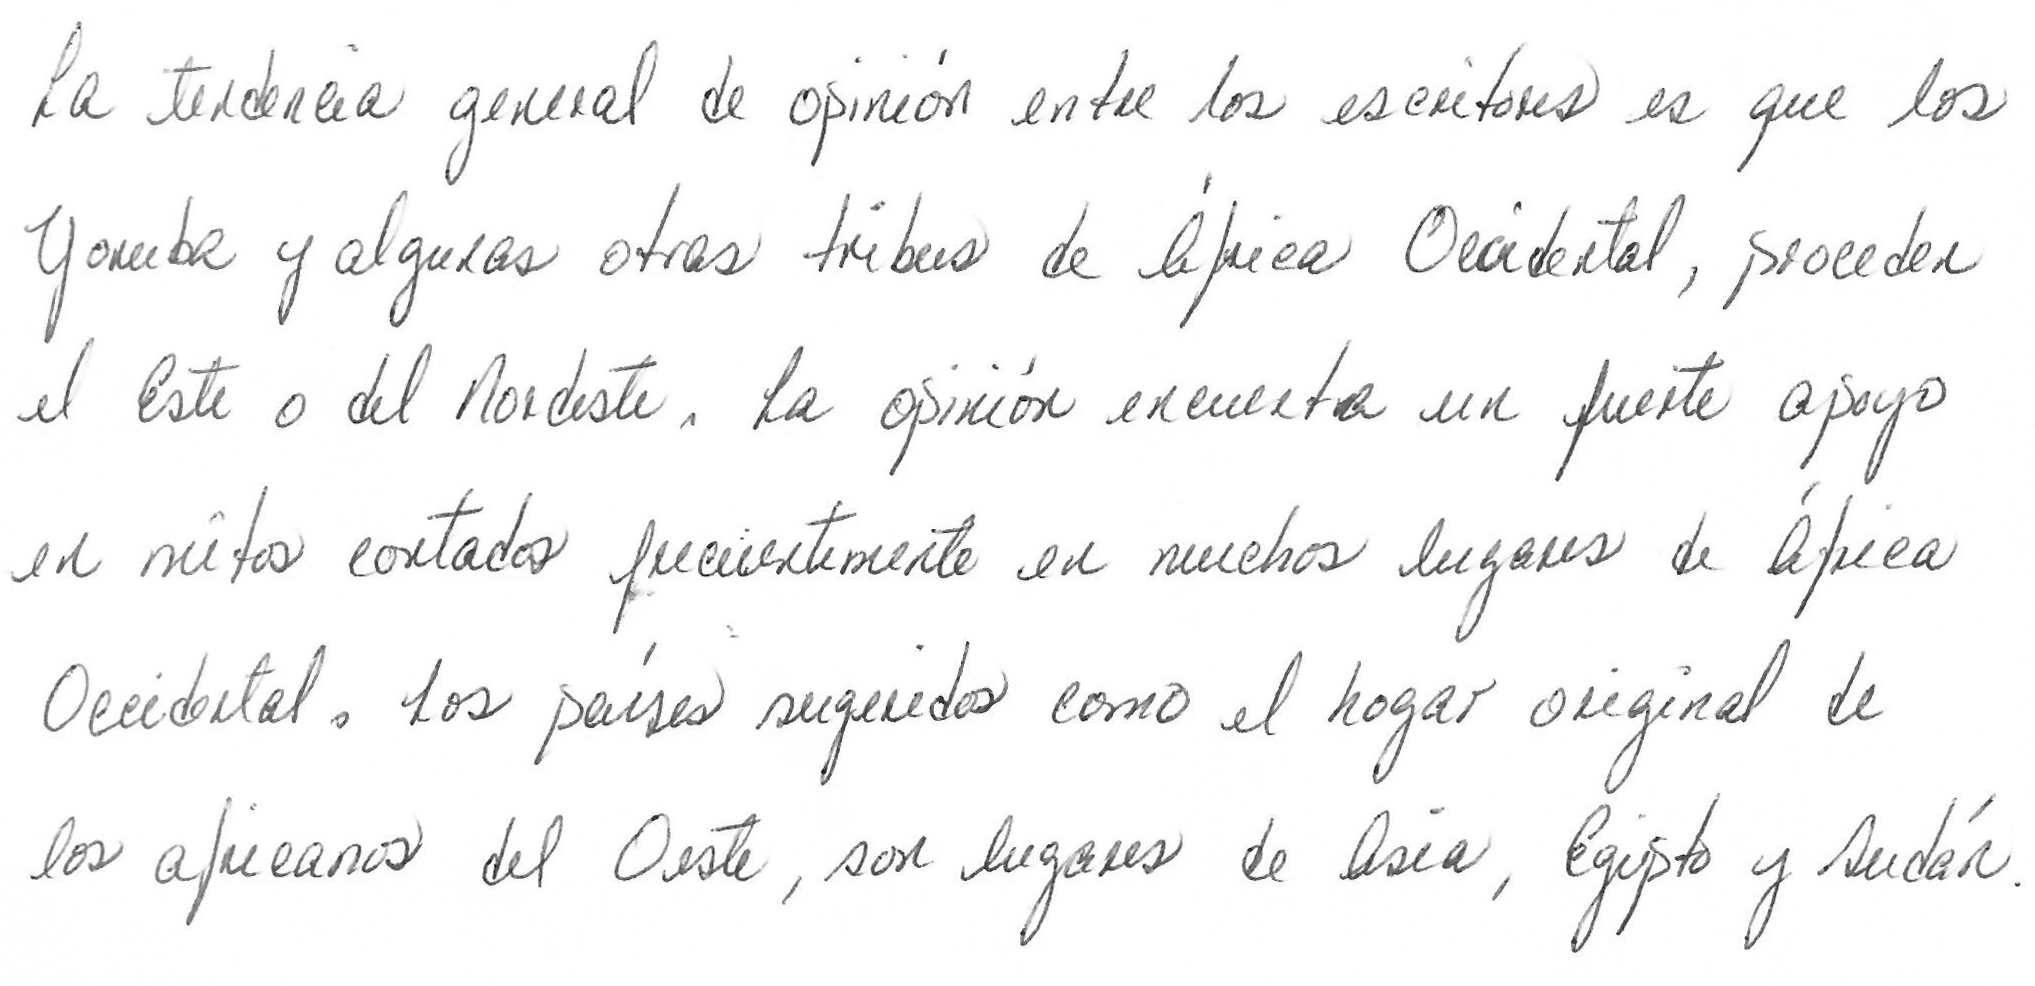 La tendencia general de opinión entre los escritores es que los
Yoruba y algunas otras tribus de África Occidental, proceden
el Este o del Nordeste. La opinión encuentra un fuerte apoyo
en mitos contados frecuentemente en muchos lugares de África
Occidental. Los países sugeridos como el hogar original de
los africanos del Oeste, son lugares de Asia, Egipto y Sudán.